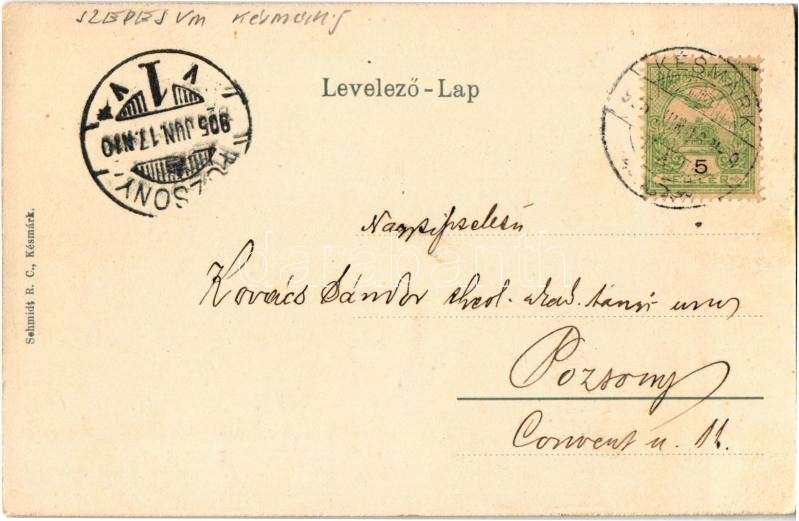 SZEPES Vm Késmárk
Levelező-Lap
POZSONY
905 JUN. 17. N10
1
KÉSMÁRK
5
FILLÉR
Kovács Sándor theol. akad. tanár
Pozsony
Convent u. 11.
Schmidt R. C., Késmárk.
darabanth